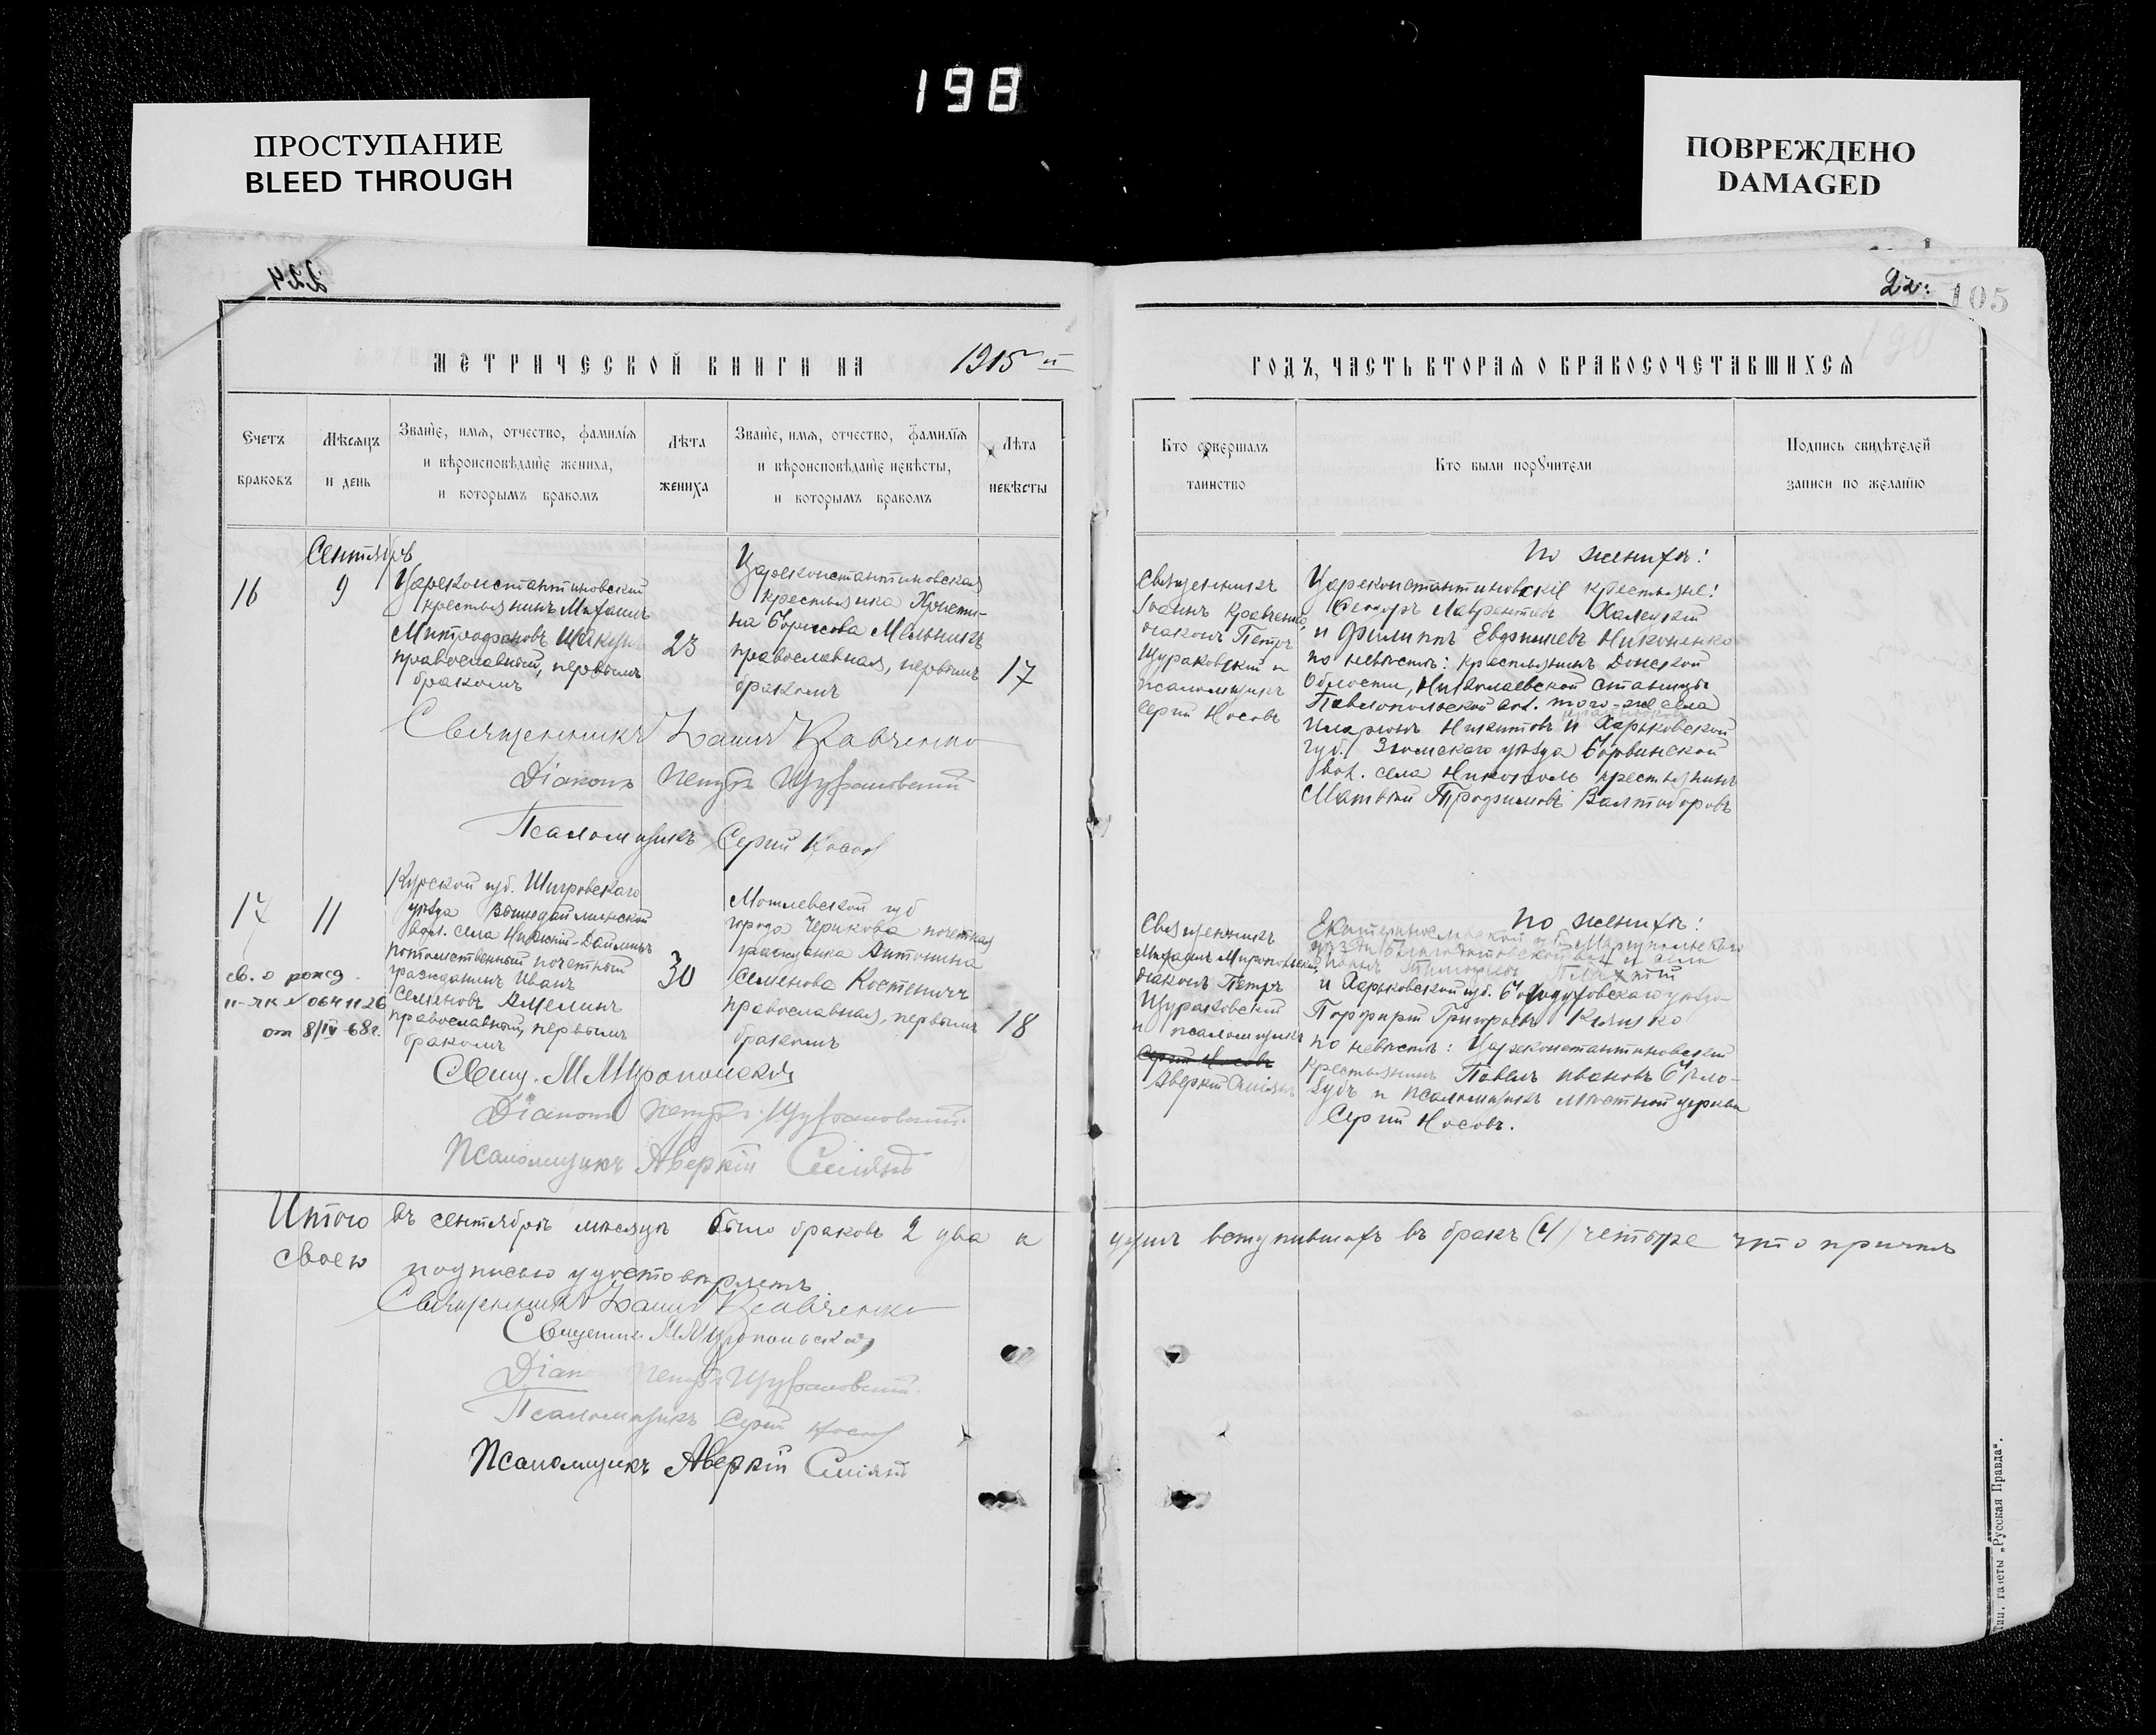 198
ПРОСТУПАНИЕ
BLEED THROUGH
ПОВРЕЖДЕНО
DAMAGED
224
105
МЕТРИЧЕСКОЙ КНИГИ НА 1915 й
ГОДЪ, ЧАСТЬ ВТОРАЯ О БРАКОСОЧЕТАВШИХСЯ
Счетъ браковъ
Мѣсяцъ и день
Званіе, имя, отчество, фамилія
и вѣроисповѣданіе жениха,
и которымъ бракомъ
Лѣта жениха
Званіе, имя, отчество, фамилія
и вѣроисповѣданіе невѣсты,
и которымъ бракомъ
Лѣта невѣсты
Кто совершалъ таинство
Кто были поручители
Подпись свидѣтелей
записи по желанію
Сентябрь
16
9
Цареконстантиновскій
крестьянинъ Михаилъ
Митрофановъ
православный, первымъ
бракомъ
23
Цареконстантиновская
крестьянка Христи-
на Борисова Мельникъ
православная, первымъ
бракомъ
17
Священникъ
Іоаннъ Кравченко,
діаконъ Петръ
Щураковскій и
псаломщикъ
Сергій Носовъ
По женихѣ:
Цареконстантиновскіе крестьяне:
Ѳеодоръ Лаврентіевъ
и Филиппъ Евфиміевъ Никоненко
по невѣстѣ: крестьянинъ Донской
Области, Николаевской станицы
Павлопольской вол. того-же села
Иларіонъ Никитовъ и Харьковской
губ. Зміевскаго уѣзда
вол. села крестьянинъ
Матвѣй Трофимовъ
Священникъ Іоаннъ Кравченко
Діаконъ Петръ Щураковскій
Псаломщикъ Сергій Носовъ
17
11
Курской губ. Щигровскаго
уѣзда
вол. села
потомственный почетный
гражданинъ Иванъ
Семеновъ Амелинъ
православный, первымъ
бракомъ
св. о рожд.
II-ЯК № 0641126
от 8/IV-68г.
30
Могилевской губ
города Черикова почетная
гражданка Антонина
Семенова Костеничъ
православная, первымъ
бракомъ
18
Священникъ
Михаилъ Миропольскій,
діаконъ Петръ
Щураковскій
и псаломщикъ
Сергій Носовъ
Аверкій
По женихѣ:
Екатеринославской губ. Маріупольскаго
уѣзда
Иванъ Тимофеевъ
и Харьковской губ. Богодуховскаго уѣзда
Порфирій Григорьевъ Кляшко
по невѣстѣ: Цареконстантиновскій
крестьянинъ Павелъ Ивановъ Бѣло-
зубъ и псаломщикъ мѣстной церкви
Сергій Носовъ.
Свящ. М Миропольскій
Діаконъ Петръ Щураковскій
Псаломщикъ Аверкій
Итого въ сентябрѣ мѣсяцѣ было браковъ 2 два и душъ вступившихъ въ бракъ (4) четыре что причтъ
своею подписью удостовѣряетъ
Священникъ Іоаннъ Кравченко
Священникъ М Миропольскій
Діаконъ Петръ Щураковскій
Псаломщикъ Сергій Носовъ
Псаломщикъ Аверкій
Тип. газеты „Русская Правда".